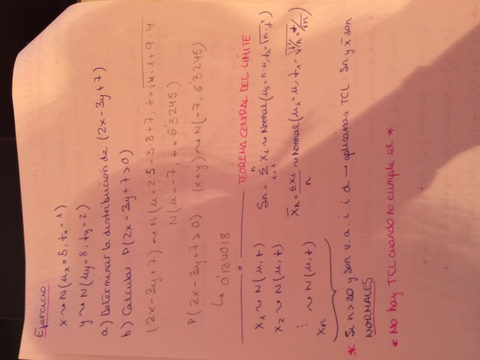 Ejercicio
x ~ N(μx = 5, σx = 1)
y ~ N(μy = 8, σy = 2)
a) Determinar la distribución de (2x - 3y + 7)
b) Calcular P(2x - 3y + 7 > 0)
(2x - 3y + 7) ~ N(μ = 2·5 - 3·8 + 7, σ = √4·1 + 9·4
N(μ = -7, σ = 6'3245)
P(2x - 3y + 7 > 0) (x+y) ~ N(-7, 6'3245)
↳ 0'134018
TEOREMA CENTRAL DEL LÍMITE
X₁ ~ N(μ, σ)
X₂ ~ N(μ, σ)
⋮
Xn ~ N(μ, σ)
Sn = Σ Xi ~ Normal (μs = n·μ, σs = √n·σ)
X̄n = ΣXi / n ~ Normal (μx̄ = μ, σx̄ = σ/√n)
* Si n > 30 y son v.a. i i d → aplicamos TCL Sn y x̄ son
NORMALES
* No hay TCL cuando no cumple el *